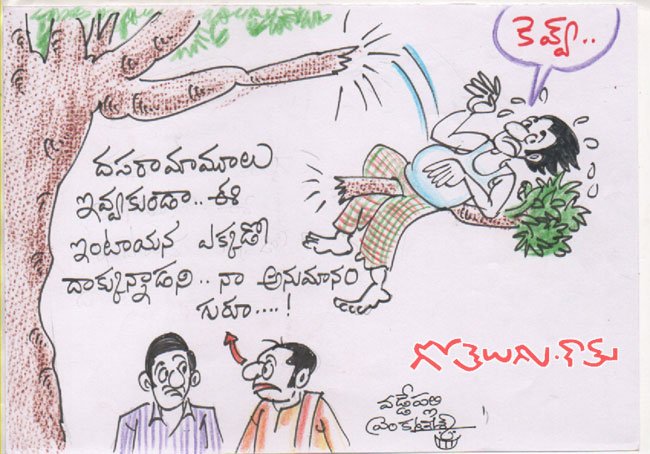 కెవ్వ్..
దసరామామూలు
ఇవ్వకుండా.. ఈ
ఇంటాయన ఎక్కడో
దాక్కున్నాడని.. నా అనుమానం
గురూ....!
గోతెలుగు.కామ్
వడ్డేపల్లి
వెంకటేశ్